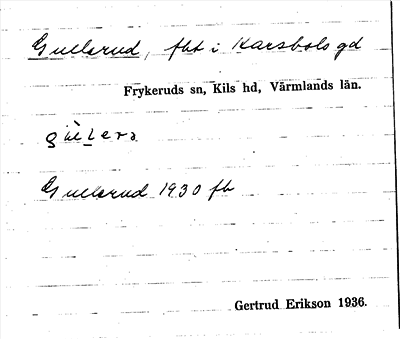 Gullerud, fbt i Karsbols gd
Frykeruds sn, Kils hd, Värmlands län.
Gullerud 1930 fb
Gertrud Erikson 1936.